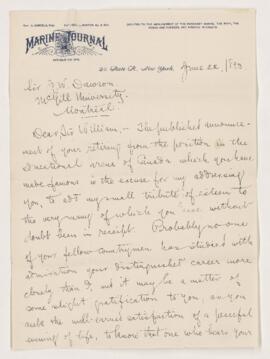 MARINE JOURNAL
New York, June 22, 1893
Sir J. W. Dawson
McGill University
Montreal
Dear Sir William, - The published announce-
ment of your retiring from the position in the
Educational arena of Canada which you have
made famous is the excuse for my addressing
you, to add my small tribute of esteem to
the very many of which you are without
doubt been in receipt. Probably no one
of your fellow countrymen has studied with
admiration your distinguished career more
closely than I, and it may be a matter of
some slight gratification to you, as you
seek the well-earned satisfaction of a peaceful
evening of life, to know that one who bears your